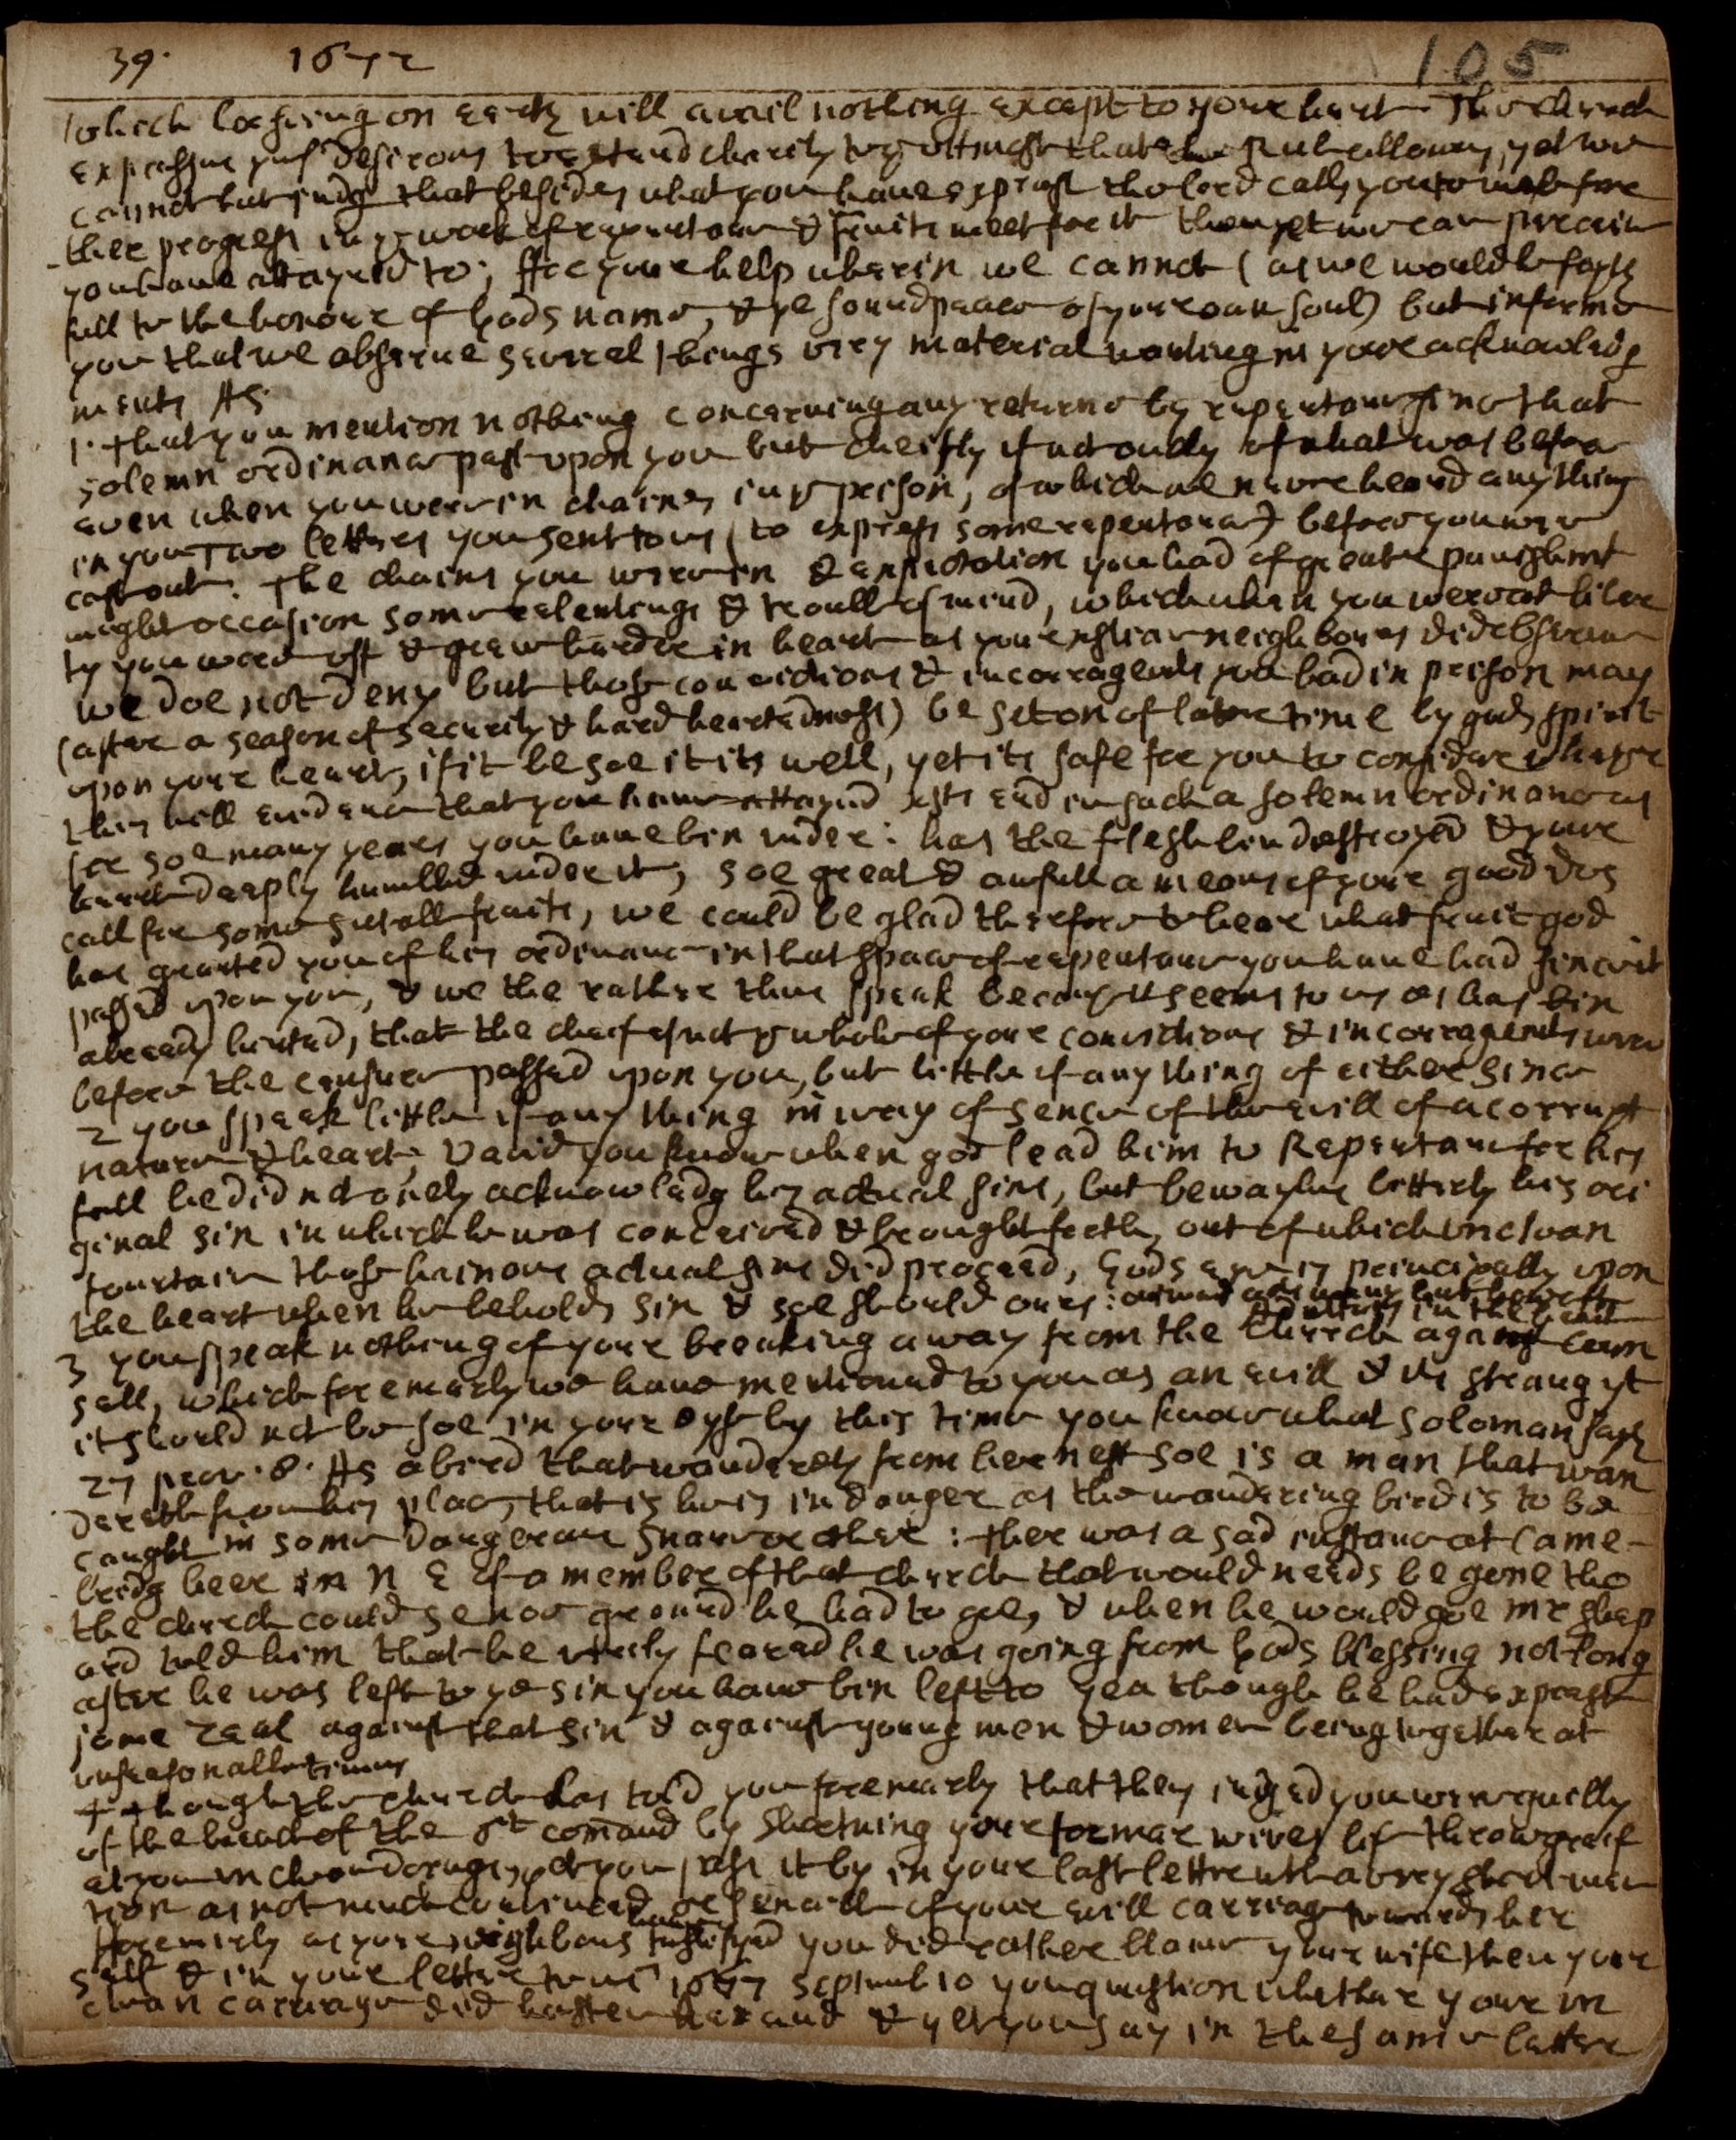 39. 1672 105
which loosing on earth will avail nothing except to youre hurt The church
expressing yns desirous to extend charity to ye vttmost that the Rule allowes, yet we
cannot but judg that besides what you have exprest the lord calls you to make fur
ther progress in ye work of repentance & fruits meet for it then yet we can perceive
you have attayned to; ffor youre help wherin we cannot (as we would be faith
full to the honour of Gods name, & ye sound peace of youre own soul) but informe
you that we observe severel things very material wanting in youre acknowledg
ments As
1. that you mention nothing concerning any returne by repentance sine that
solemn ordinance past upon you but cheifly if not only of what was before
even when you were in chaines in ye prison, of which we never heard any thing
in your two letters you sent to us (to express some repentance) before you were
cast out: the chaines you were in & expectation you had of greater punishmt
might occasion some relentings & trouble of mind, which when you were at liber
ty you wore off & grew harder in heart as youre neighbours did observe
we doe not deny but those convictions & incorragments you had in prison may
(after a season of security & hard heartedness) be set on of later time by gods spirit
upon youre heart, if it be soe it is well, yet its safe for you to consider whether
this will evidence that you have attayned its end in such a solemn ordinance as
for soe many yeares you have bin under: has the flesh bin destroyed & youre
heart deeply humbled under it, soe great & awfull a meanes of youre good dos
call for some sutable fruits, we could be glad therefore to hear what fruit god
has granted you of his ordinance in that space of repentance you have had since it
passed upon you, & we the rather thus speak because it seems to us as has bin
already hinted, that the cheif if not ye whole of youre convictions & incorragements were
before the censure passed upon you, but little if any thing of either since
2 you speak little if any thing in way of sence of the evill of a corrupt
nature & heart; David you know when god lead him to Repentance for his
fall he did not only acknowledg his actual sins, but bewayles bitterly his ori
ginal sin in which he was conceived & brought forth, out of which unclean
fountain those hainous actual sins did proceed, Gods eye is principally upon
the heart when he beholds sin & soe should ours: outward acts
Adultery in the heart
3 you speak nothing of youre breaking away from the Church against coun
sell, which foremerly we have mentioned to you as an evill & its strang yt
it should not be soe in youre eyes by this time you know what Soloman saith
27 prov. 8. As a bird that wandreth from her nest soe is a man that wan
dereth from his place, that is he is in danger as the wandering bird is to be
caught in some dangerous snare or other: ther was a sad instance at Came-
bridg heer in N E of a member of that church that would needs be gone tho
the church could se noe ground he had to goe, & when he would goe mr Shep
ard told him that he verely feared he was going from Gods blessing not long
after he was left to ye sin you have bin left to yea though he had exprest
some zeal against that sin & against young men & women being together at
unseasonable times
4 though the church has told you foremerly that they judged you were guilty
of the breach of the 6t comand by shortning youre former wives life throw greif
at youre uncleane doeings, yet you pass it by in youre last letter with a very short men
tion as not much convinced or sencible of youre evill carriage towards her
foremerly as youre neighbours have testifyed you did rather blame youre wife then youre
self & in youre letter to us 1667 Septemb 10 you question whether youre un
clean carriage did hasten her end & yet you say in the same letter